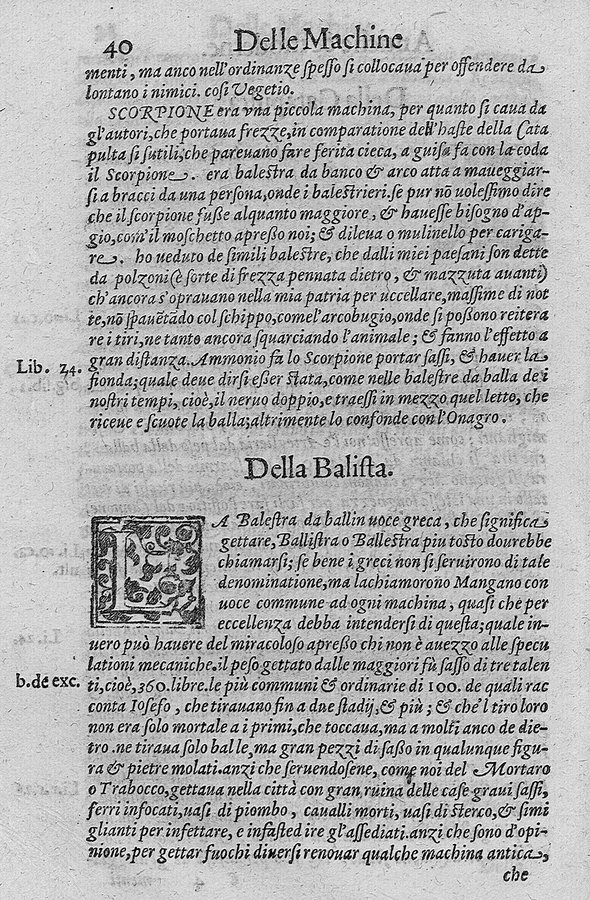 40 Delle Machine
menti, ma anco nell'ordinanze spesso si collocaua per offendere da
lontano i nimici. cosi Vegetio.
SCORPIONE era vna piccola machina, per quanto si caua da
gl'autori, che portaua frezze, in comparatione dell'haste della Cata
pulta si sutili, che pareuano fare ferita cieca, a guisa fa con la coda
il Scorpione. era balestra da banco & arco atta a maueggiar-
si a bracci da una persona, onde i balestrieri. se pur nō uolessimo dire
che il scorpione fusse alquanto maggiore, & hauesse bisogno d'ap-
gio, com'il moschetto apresso noi; & di leua o mulinello per cariga-
re. ho ueduto de simili balestre, che dalli miei paesani son dette
da polzoni (è sorte di frezza pennata dietro, & mazzuta auanti)
ch'ancora s'oprauano nella mia patria per uccellare, massime di not
te, nō spauētādo col schippo, come l'arcobugio, onde si possono reitera
re i tiri, ne tanto ancora squarciando l'animale; & fanno l'effetto a
Lib. 24. gran distanza. Ammonio fa lo Scorpione portar sassi, & hauer la
fionda; quale deue dirsi esser stata, come nelle balestre da balla dei
nostri tempi, cioè, il neruo doppio, e traessi in mezzo quel letto, che
riceue e scuote la balla; altrimente lo confonde con l'Onagro.
Della Balista.
LA Balestra da ballin uoce greca, che significa
gettare, Ballistra o Ballestra piu tosto dourebbe
chiamarsi; se bene i greci non si seruirono di tale
denominatione, ma la chiamorono Mangano con
uoce commune ad ogni machina, quasi che per
eccellenza debba intendersi di questa; quale in-
uero può hauere del miracoloso apresso chi non è auezzo alle specu
lationi mecaniche. il peso gettato dalle maggiori fù sasso di tre talen
b. de exc. ti, cioè, 360. libre. le più communi & ordinarie di 100. de quali rac
conta Iosefo, che tirauano fin a due stadij, & più; & che'l tiro loro
non era solo mortale a i primi, che toccaua, ma a molti anco de die-
tro. ne tiraua solo balle, ma gran pezzi di sasso in qualunque figu-
ra & pietre molati. anzi che seruendosene, come noi del Mortaro
o Trabocco, gettaua nella città con gran ruina delle case graui sassi,
ferri infocati, uasi di piombo, caualli morti, uasi di sterco, & simi
glianti per infettare, e infastedire gl'assediati. anzi che sono d'opi-
nione, per gettar fuochi diuersi renouar qualche machina antica,
che